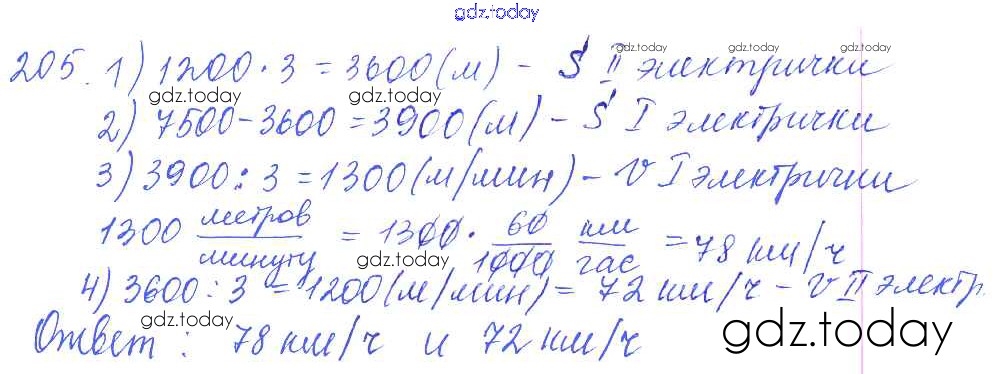 gdz.today
205. 1) 1200 · 3 = 3600 (м) - S II электрички
gdz.today
gdz.today gdz.today
2) 7500 - 3600 = 3900 (м) - S I электрички
3) 3900 : 3 = 1300 (м/мин) - v I электрички
1300 метров/минуту = 1300 · 60/1000 км/час = 78 км/ч
gdz.today
4) 3600 : 3 = 1200 (м/мин) = 72 км/ч - v II электр.
gdz.today gdz.today
Ответ: 78 км/ч и 72 км/ч